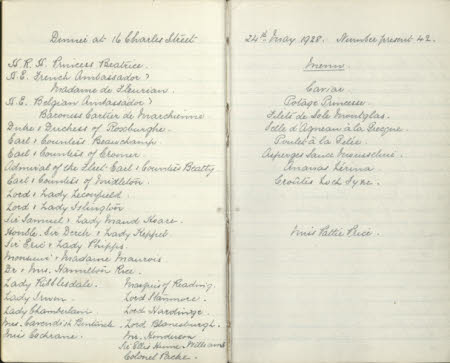 Dinner at 16 Charles Street
H.R.H. Princess Beatrice.
H.E. French Ambassador &
Madame de Fleurian.
H.E. Belgian Ambassador &
Baroness Cartier de Marchienne
Duke & Duchess of Roxburghe.
Earl & Countess Beauchamp.
Earl & Countess of Cromer.
Admiral of the Fleet Earl & Countess Beatty
Earl & Countess of Midleton.
Lord & Lady Leconfield.
Lord & Lady Islington
Sir Samuel & Lady Maud Hoare.
Honble. Sir Derek & Lady Keppel
Sir Eric & Lady Phipps.
Monsieur & Madame Maurois
Dr & Mrs. Hamilton Rice.
Lady Ribblesdale.
Lady Irwin.
Lady Chamberlain
Mrs. Cavendish Bentinck.
Miss Cochrane.
Marquis of Reading.
Lord Stanmore.
Lord Hardinge.
Lord Blanesburgh.
Mr. Henderson
Sir Ellis Hume-Williams
Colonel Packe.
24th May 1928. Number present 42.
Menu
Caviar
Potage Princesse.
Filets de Sole Montglas.
Selle d'Agneau à la Grecque
Poulet à la
Asperges Sauce Mousseline.
Ananas
Croûtes Loch Fyne.
Miss Pattie Price.